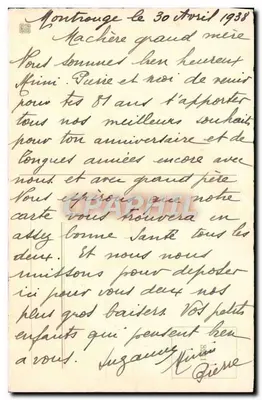 Montrouge le 30 Avril 1938
Ma chère grand mère
Nous sommes bien heureux
Mimi. Pierre et moi de venir
pour tes 81 ans t'apporter
tous nos meilleurs souhaits
pour ton anniversaire et de
longues années encore avec
nous et avec grand père
Nous espérons que notre
carte vous trouvera en
assez bonne santé tous les
deux. Et nous nous
unissons pour deposer
ici pour vous deux nos
plus gros baisers. Vos petits
enfants qui pensent bien
a vous. Suzanne Mimi
Pierre